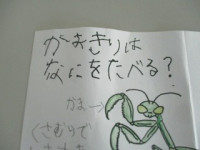 かまきりは
なにをたべる?
かま→
くさむらで